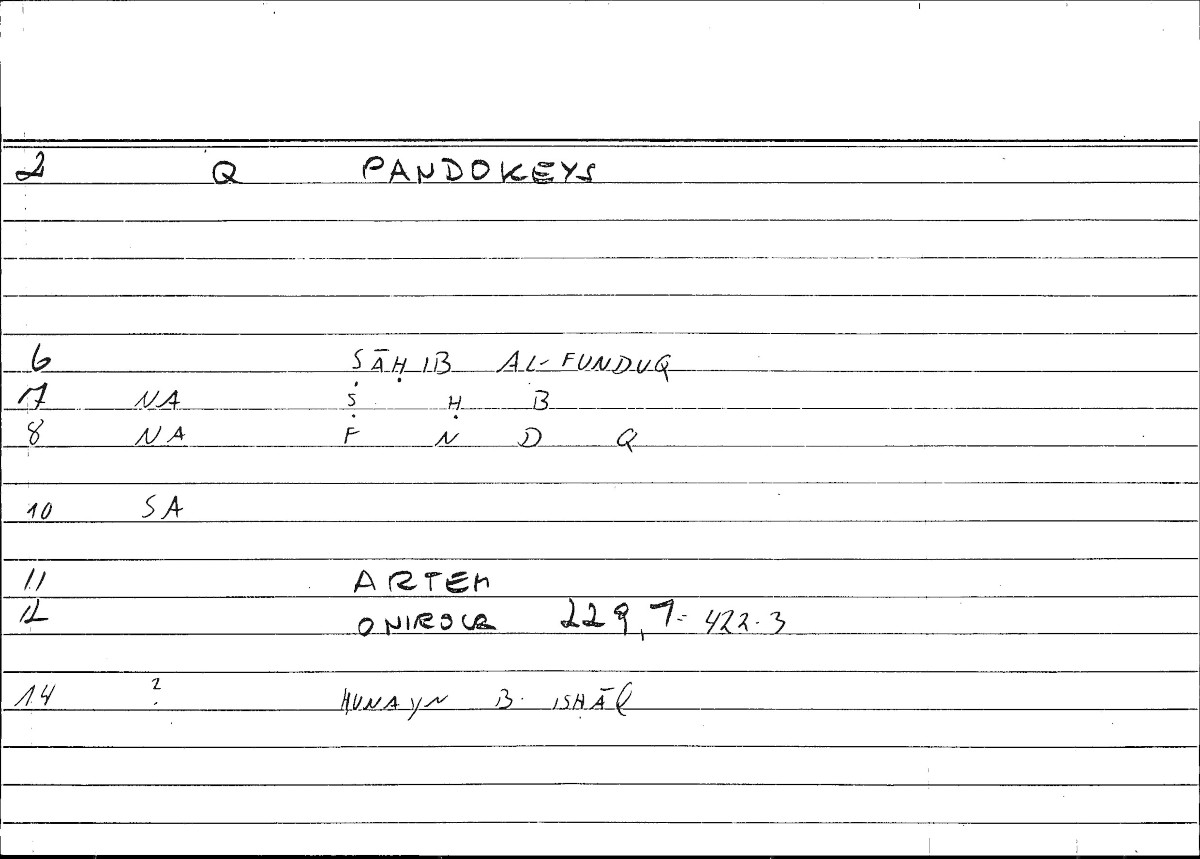 2 Q PANDOKEYS
6 ṢĀḤIB AL-FUNDUQ
7 NA Ṣ Ḥ B
8 NA F N D Q
10 SA
11 ARTEM
12 ONIROCR 229,7= 422.3
14 ? HUNAYN B. ISḤĀQ